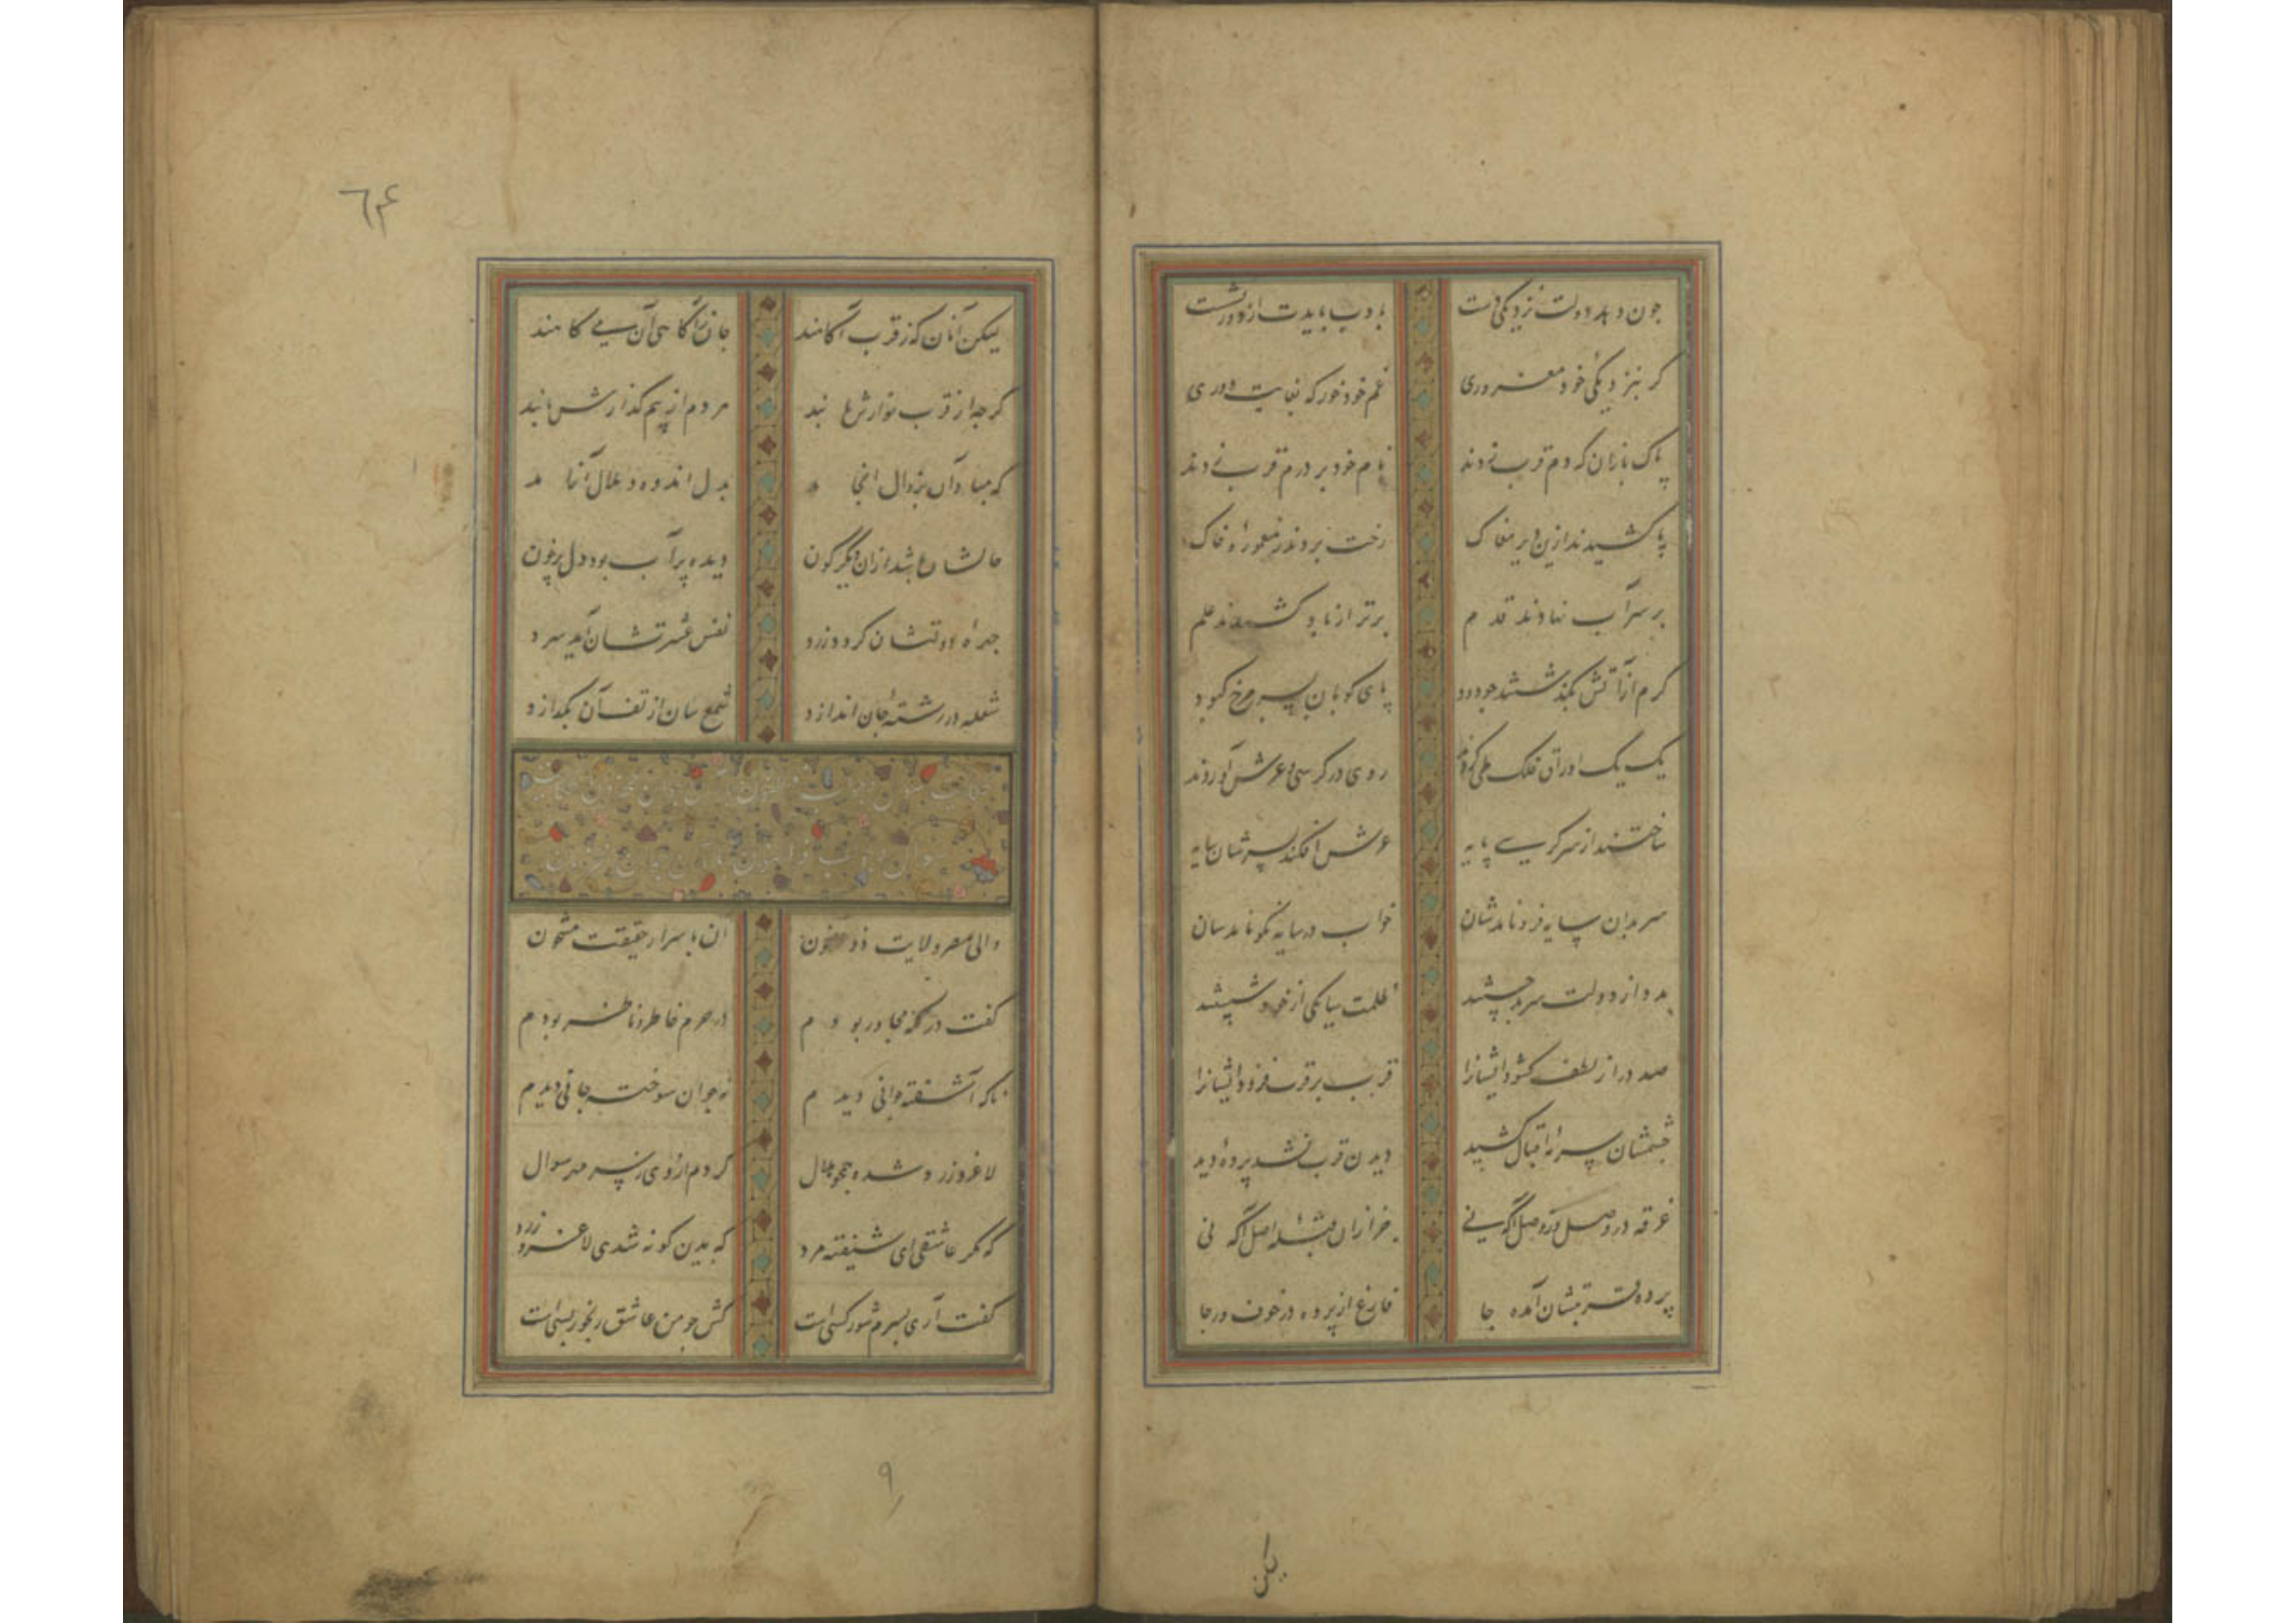 چون دهد دولت نزدیکی دست
با ادب باید از دور نشست
گر بنزدیکی خود مغروری
غم خود خور که بغایت دوری
پاک بازان که دم قرب زدند
نام خود بر درم قرب زدند
پا کشیدند ازین دیر مغاک
رخت بردند ز معموره خاک
بر سر آب نهادند قدم
برتر از باد کشیدند علم
گرم از آتش بگذشتند چو دود
پای کوبان بسر چرخ کبود
یک یک اوراق فلک طی کردند
روی در کرسی و عرش آوردند
ساختند از سر کرسی پایه
عرش افکند بسرشان سایه
سر بدان سایه فرو نامدشان
خواب در سایه نکو نامدشان
صد در از لطف گشود ایشانرا
قرب بر قرب فزود ایشانرا
چشمشان سرمه اقبال کشید
دیدن قرب نشد پرده دید
غرقه در وصل و ز وصل آگه نی
پرده قربتشان آمده جا
فارغ از پرده در خوف و رجا
لیکن
٦۴
لیکن آنان که ز قرب آگاهند
جان ز آگاهی آن می کاهند
گر چه از قرب نوازش یابند
هر دم از بیم گدازش یابند
که مبادا آن بزوال انجامد
بدل اندوه و ملال آشامد
حالشان باشد ازان دیگرگون
دیده پر آب بود دل پر خون
چهره دولتشان گردد زرد
نفس عشرتشان آید سرد
شعله در رشته جان اندازد
شمع سان از تف آن بگدازد
والی مصر ولایت ذو النون
آن با سرار حقیقت مشحون
گفت در مکه مجاور بودم
در حرم حاضر و ناظر بودم
ناگه آشفته جوانی دیدم
نه جوان سوخته جانی دیدم
لاغر و زرد شده همچو هلال
کردم از وی ز سر مهر سوال
که مگر عاشقی ای شیفته مرد
که بدین گونه شدی لاغر و زرد
گفت آری بسرم شور کسی است
کش چو من عاشق رنجور بسی است
۹